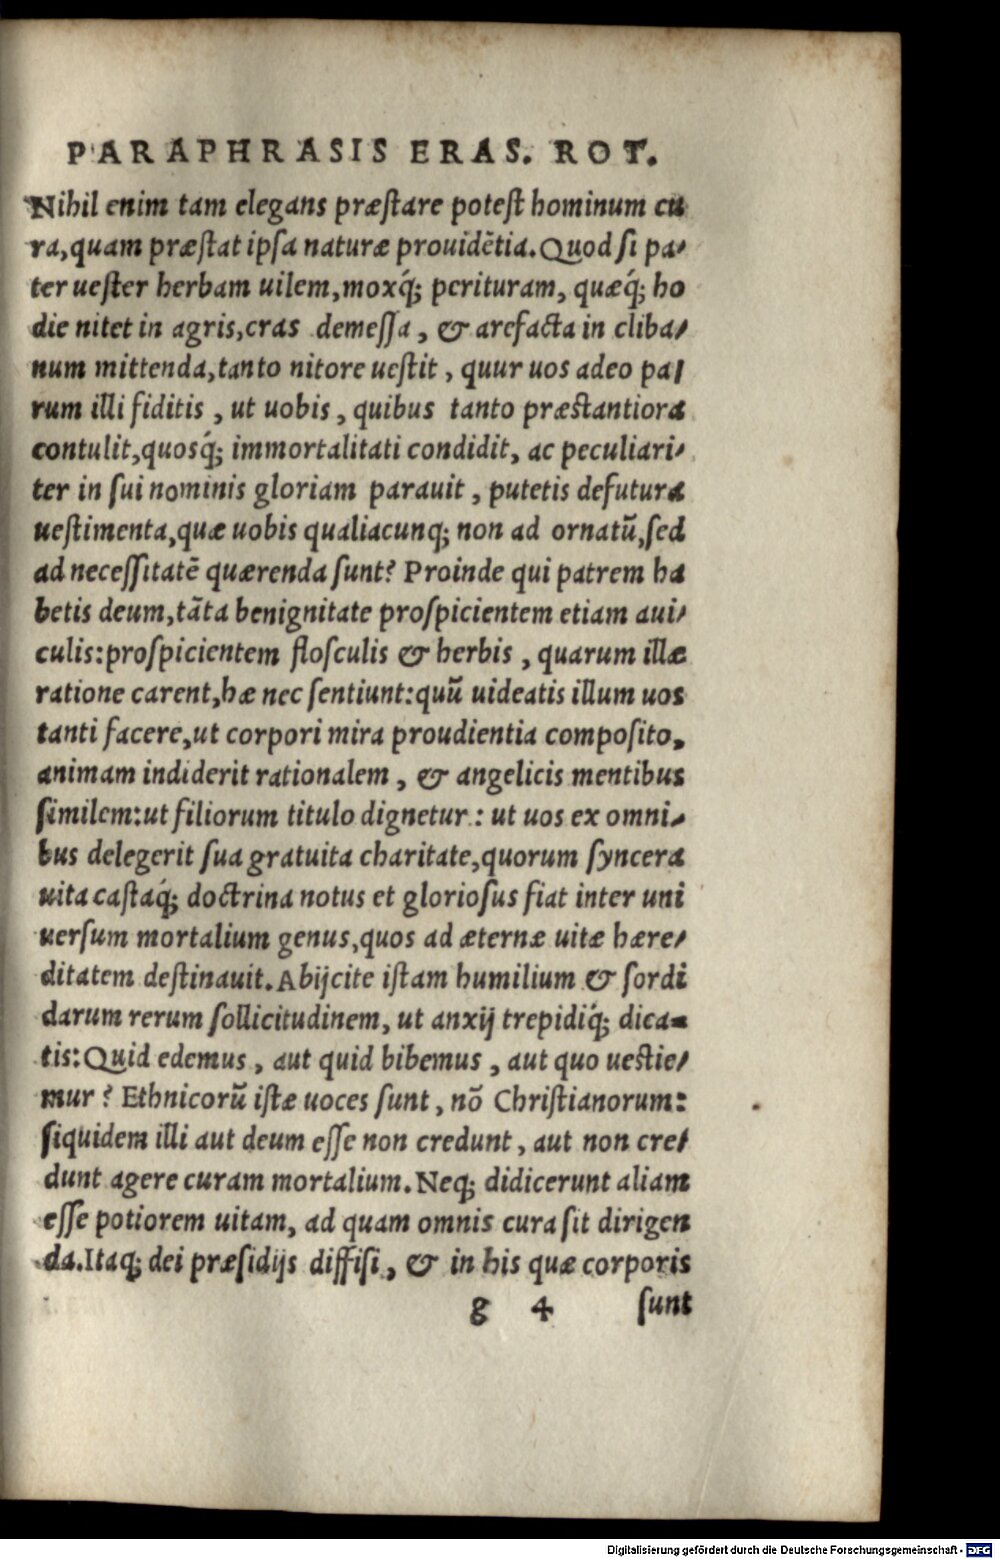 PARAPHRASIS ERAS. ROT.
Nihil enim tam elegans præſtare poteſt hominum cu
ra,quam præſtat ipſa naturæ prouidētia.Quod ſi pa⸗
ter ueſter herbam uilem,moxq́; perituram, quæq́; ho
die nitet in agris,cras demeſſa, & arefacta in cliba⸗
num mittenda,tanto nitore ueſtit, quur uos adeo pa⸗
rum illi fiditis, ut uobis, quibus tanto præstantiora
contulit,quosq́; immortalitati condidit, ac peculiari⸗
ter in ſui nominis gloriam parauit, putetis defutura
ueſtimenta,quæ uobis qualiacunq; non ad ornatū,ſed
ad neceſſitatē quærenda ſunt? Proinde qui patrem ha
betis deum,tāta benignitate proſpicientem etiam aui⸗
culis:proſpicientem floſculis & herbis, quarum illæ
ratione carent,hæ nec ſentiunt:quū uideatis illum uos
tanti facere,ut corpori mira proudientia compoſito,
animam indiderit rationalem, & angelicis mentibus
ſimilem:ut filiorum titulo dignetur: ut uos ex omni⸗
bus delegerit ſua gratuita charitate,quorum ſyncera
uita caſtaq́; doctrina notus et glorioſus fiat inter uni
uerſum mortalium genus,quos ad æternæ uitæ hære⸗
ditatem deſtinauit.Abijcite iſtam humilium & ſordi
darum rerum ſollicitudinem, ut anxij trepidiq́; dica⸗
tis:Quid edemus, aut quid bibemus, aut quo uestie⸗
mur? Ethnicorū iſtæ uoces ſunt, nō Chriſtianorum:
ſiquidem illi aut deum eſſe non credunt, aut non cre⸗
dunt agere curam mortalium.Neq; didicerunt aliam
eſſe potiorem uitam, ad quam omnis cura ſit dirigen
da.Itaq; dei præſidijs diffiſi, & in his quæ corporis
g 4 ſunt
Digitalisierung gefördert durch die Deutsche Forschungsgemeinschaft - DFG